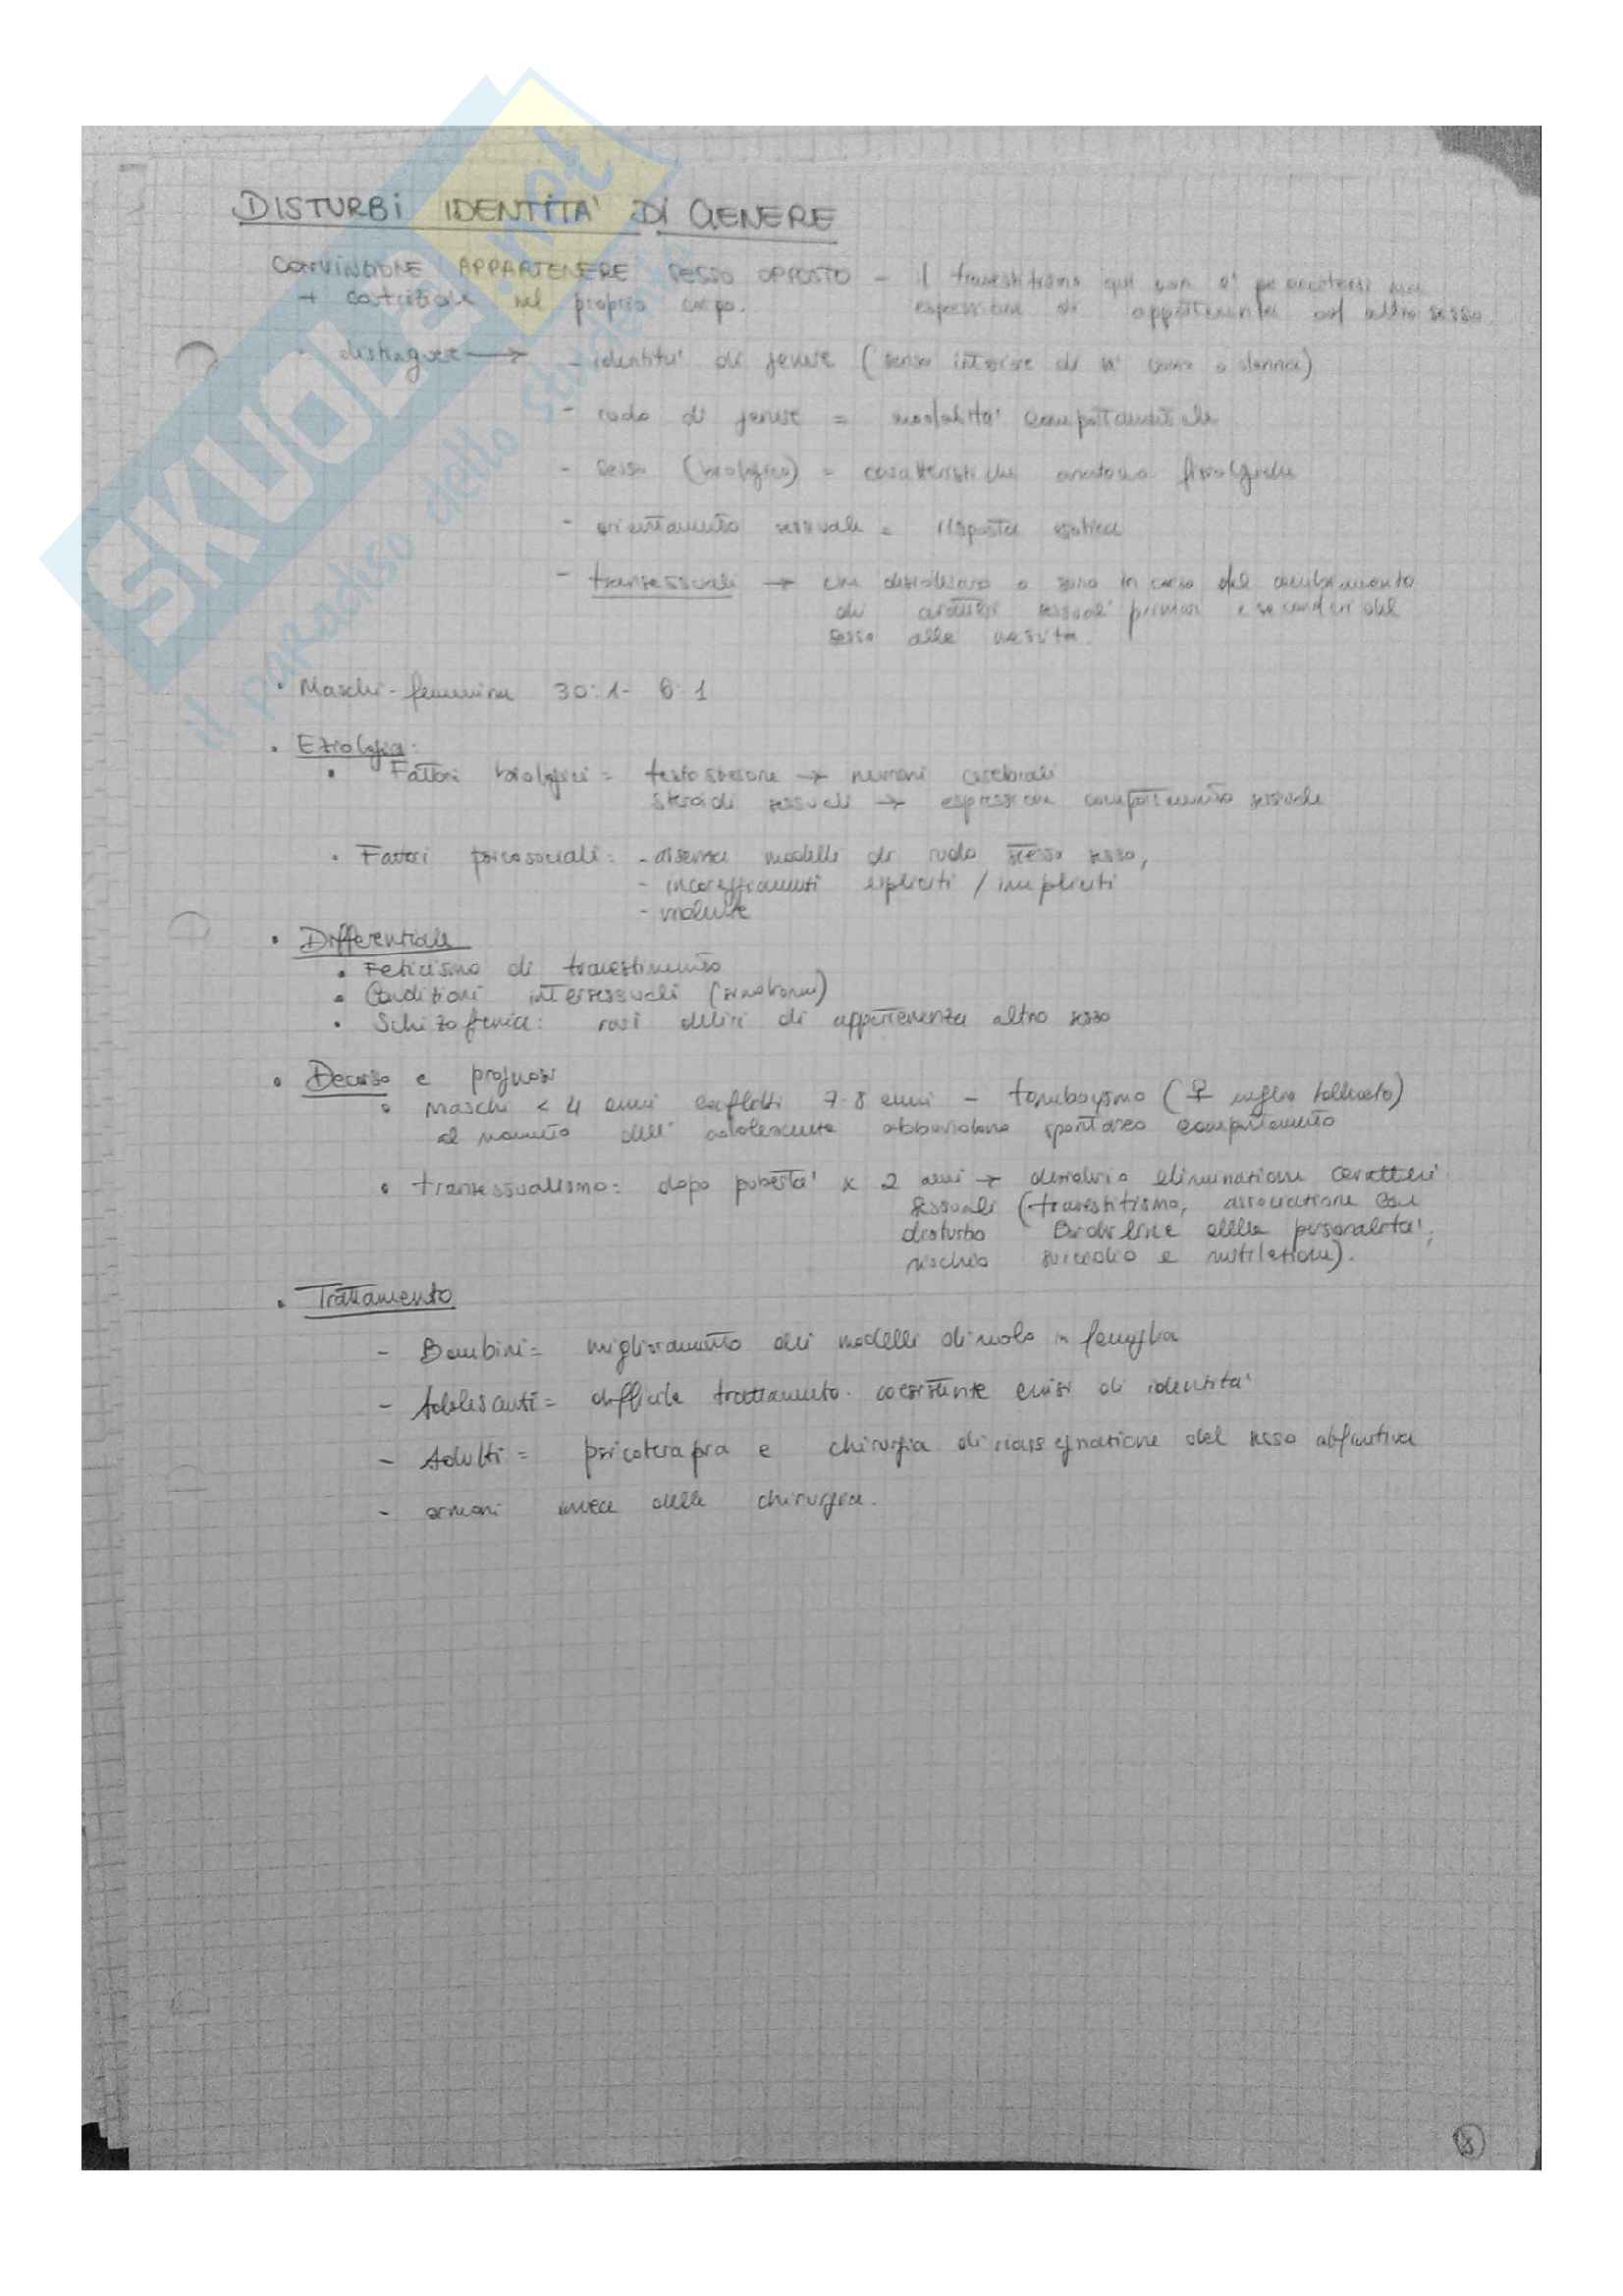 DISTURBI IDENTITA' DI GENERE
CONVINZIONE APPARTENERE SESSO OPPOSTO - Il travestitismo qui non è per eccitarsi ma
+ costrizione nel proprio corpo. espressione di appartenenza all'altro sesso
distinguere → - identita' di genere (senso interiore di se' uomo o donna)
- ruolo di genere = modalita' comportamentali
- Sesso (biologico) = caratteristiche anatomo fisiologiche
- orientamento sessuale = risposta erotica
- transessuali → che desiderano o sono in corso del cambiamento
di caratteri sessuali primari e secondari del
sesso alla nascita.
• Maschi-femmine 30:1 - 6:1
• Eziologia:
• Fattori biologici = testosterone → neuroni cerebrali
steroidi sessuali → espressione comportamento sessuale
• Fattori psicosociali: - assenza modelli di ruolo stesso sesso,
- incoraggiamenti espliciti / impliciti
- violente
• Differenziale
• Feticismo di travestimento
• Condizioni intersessuali (sindromi)
• Schizofrenia: rari deliri di appartenenza altro sesso
• Decorso e prognosi
• Maschi < 4 anni conflitti 7-8 anni - tomboysmo (♀ meglio tollerato)
al momento dell' adolescenza abbandono spontaneo comportamento
• transessualismo: dopo puberta' x 2 anni → desiderio eliminazione caratteri
sessuali (travestitismo, associazione con
disturbo Borderline della personalita',
rischio suicidio e mutilazioni).
• Trattamento
- Bambini = miglioramento dei modelli di ruolo in famiglia
- Adolescenti = difficile trattamento. coesistente crisi di identita'
- Adulti = psicoterapia e chirurgia di riassegnazione del sesso definitiva
- ormoni invece della chirurgia.
8
SKUOLA.net
il paradiso dello studente